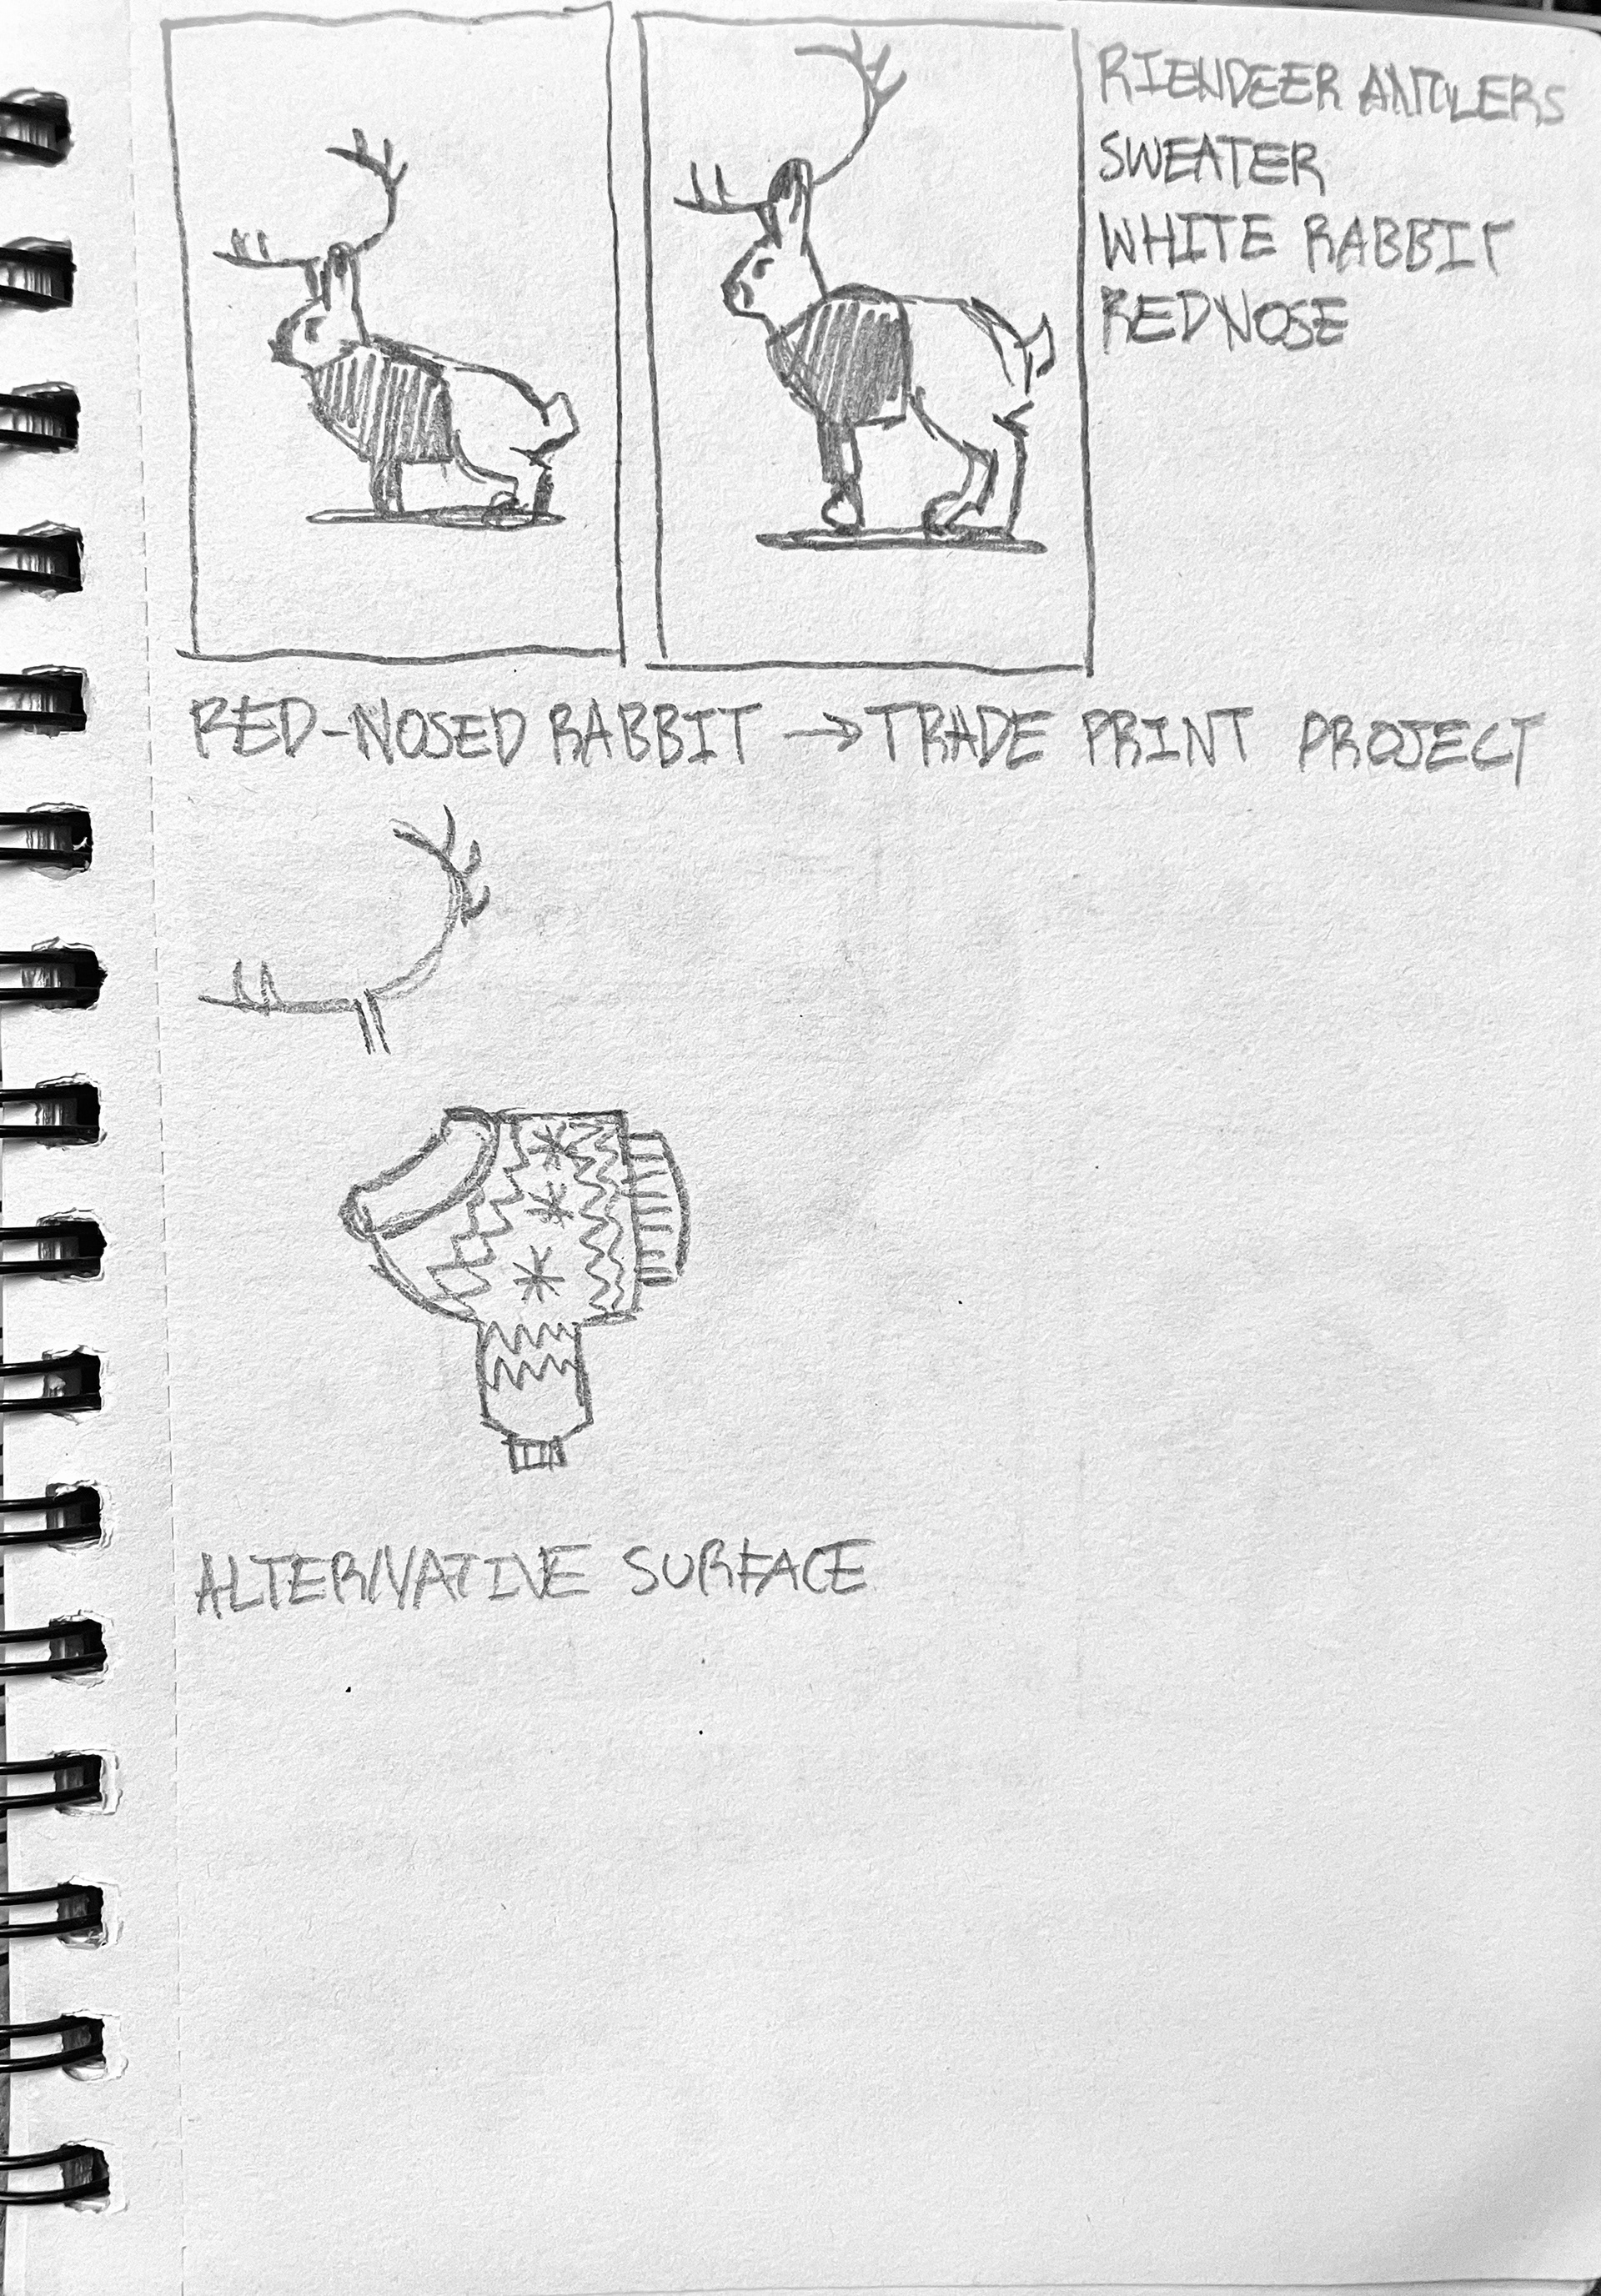 RIENDEER ANTLERS
SWEATER
WHITE RABBIT
RED NOSE
RED-NOSED RABBIT → TRADE PRINT PROJECT
ALTERNATIVE SURFACE